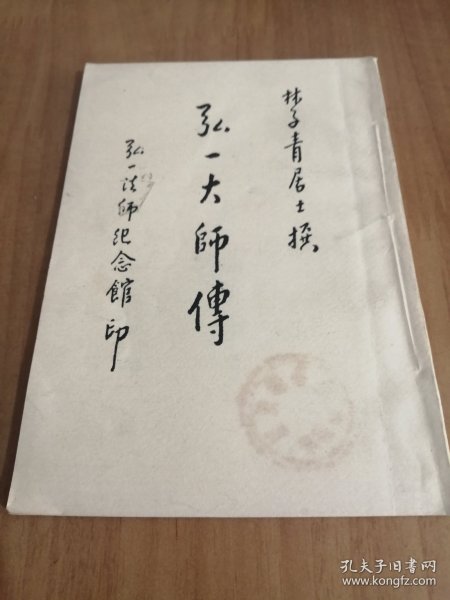 林子青居士撰
弘一大師傳
弘一法師纪念館印
孔夫子旧书网
www.kongfz.com